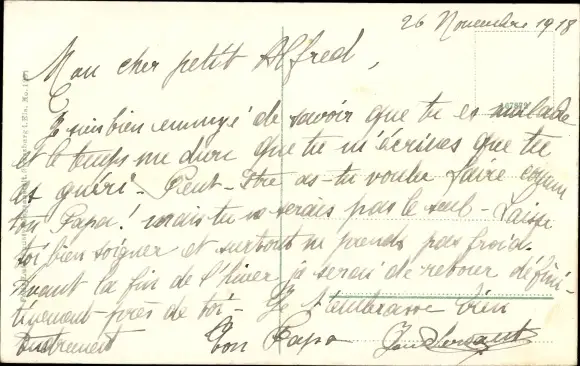 26 Novembre 1918
Mon cher petit Alfred,
Je suis bien ennuyé de savoir que tu es malade
et le temps me dure que tu m'écrives que tu
es guéri. Peut-être as-tu voulu faire comme
ton Papa! mais tu ne serais pas le seul - Laisse
toi bien soigner et surtout ne prends pas froid.
Avant la fin de l'hiver je serai de retour défini-
tivement près de toi - Je t'embrasse bien
Ton Papa